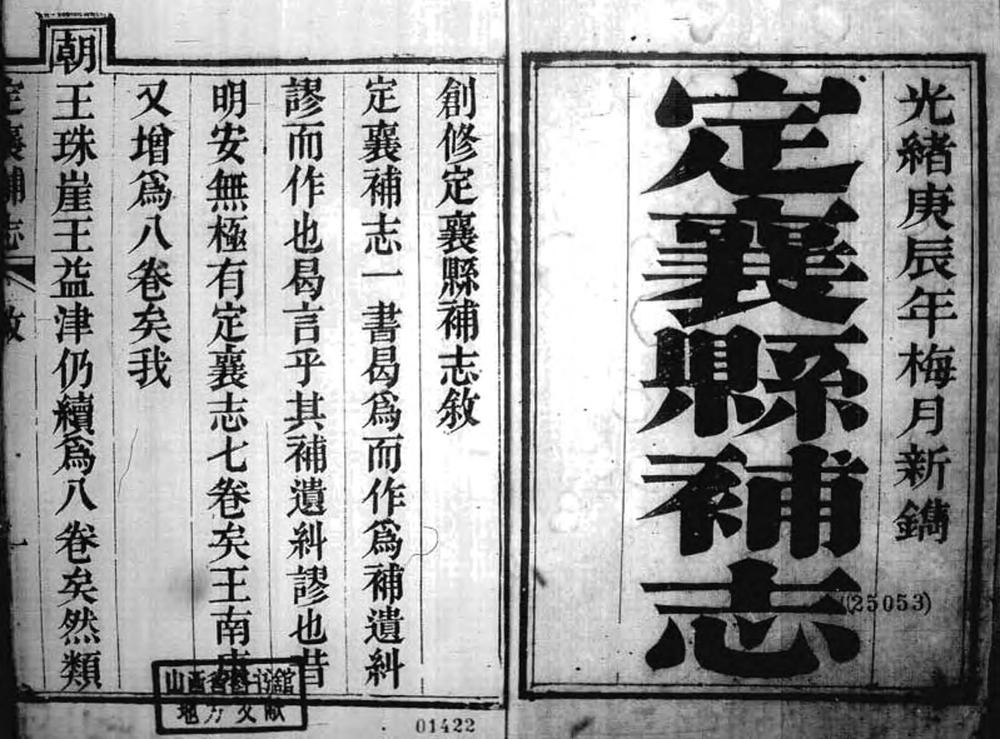 光緒庚辰年梅月新鐫
定襄縣補志
(25053)
創修定襄縣補志敘
定襄補志一書曷爲而作爲補遺糾
謬而作也曷言乎其補遺糾謬也昔
明安無極有定襄志七卷矣王南
又增爲八卷矣我
朝
王珠崖王益津仍續爲八卷矣然類
定襄補志
一
地方文献
01422